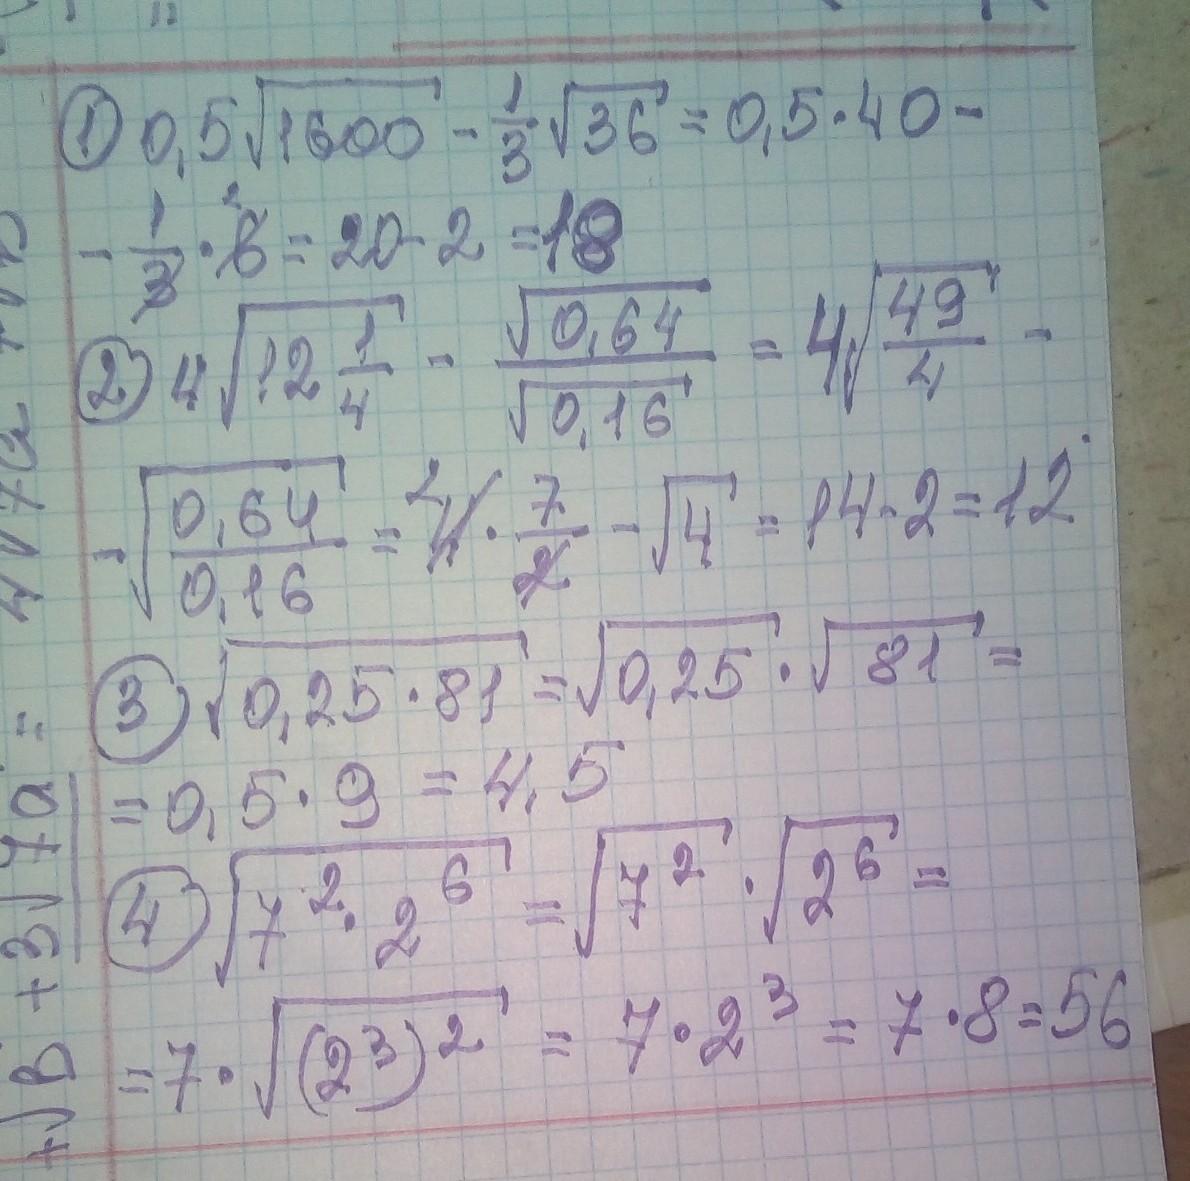 ① 0,5√1600 - 1/3 √36 = 0,5·40 -
- 1/3 · 6 = 20 - 2 = 18
② 4√12 1/4 - √0,64/√0,16 = 4√49/4 -
- √0,64/0,16 = 4 · 7/2 - √4 = 14 - 2 = 12
③ √0,25·81 = √0,25 · √81 =
= 0,5 · 9 = 4,5
④ √7² · 2⁶ = √7² · √2⁶ =
= 7 · √(2³)² = 7 · 2³ = 7 · 8 = 56